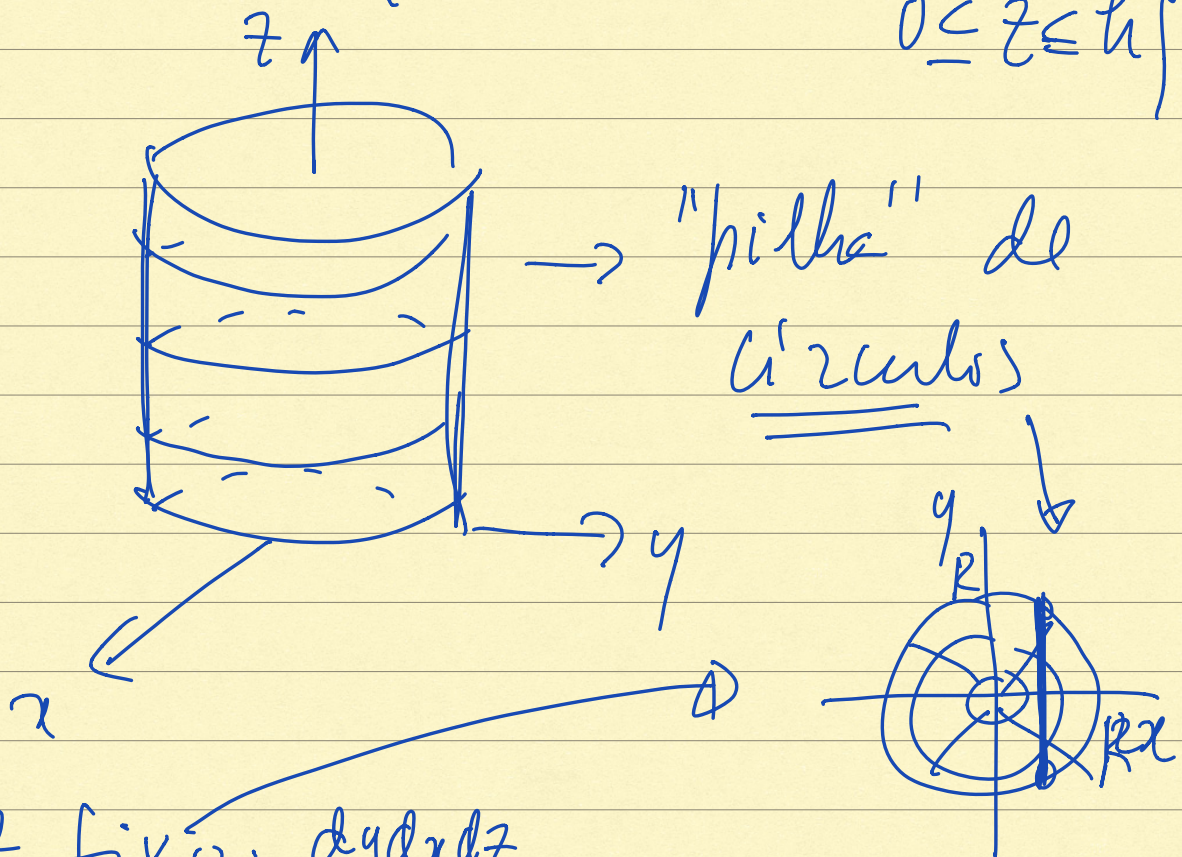 0 ≤ z ≤ h}
z
"pilha" de
círculos
y
R
y
R x
x
z fixo: dydxdz